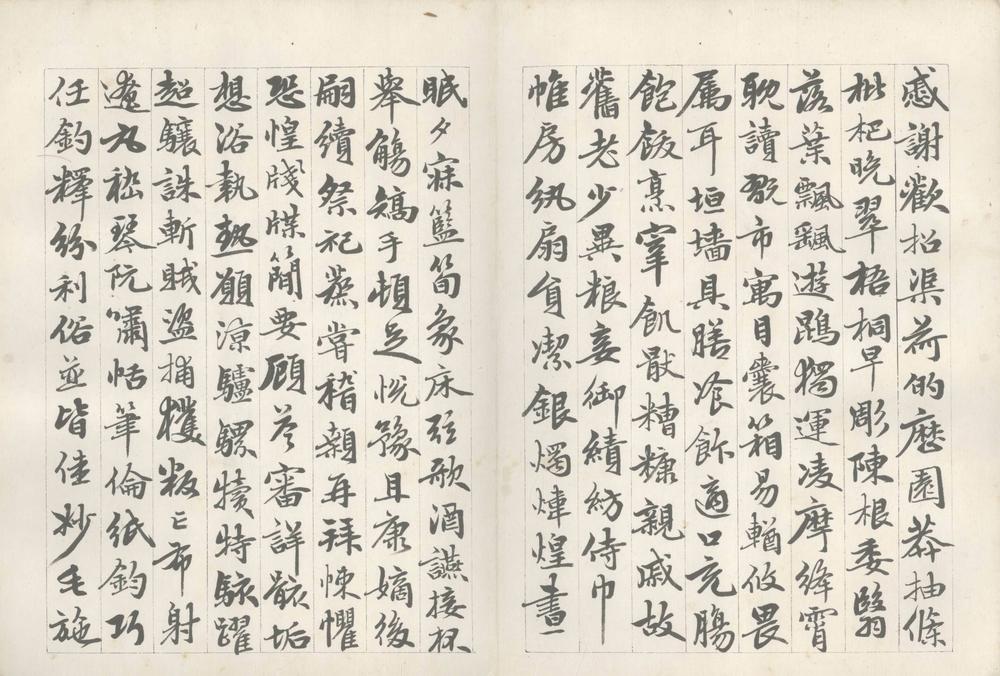 慼謝歡招渠荷的歷園莽抽條
枇杷晚翠梧桐早彫陳根委翳
落葉飄颻遊鵾獨運凌摩絳霄
耽讀翫市寓目囊箱易輶攸畏
属耳垣墻具膳飡飰適口充腸
飽飫烹宰飢猒糟糠親戚故
舊老少異粮妾御績紡侍巾
帷房紈扇員潔銀燭煒煌晝
眠夕寐籃筍象床弦歌酒讌接杯
舉觴矯手頓足悅豫且康嫡後
嗣續祭祀蒸嘗稽顙再拜悚懼
恐惶牋牒簡要顧答審詳骸垢
想浴執熱願涼驢騾犢特駭躍
超驤誅斬賊盜捕獲叛亡布射
遼丸嵇琴阮嘯恬筆倫紙鈞巧
任釣釋紛利俗並皆佳妙毛施